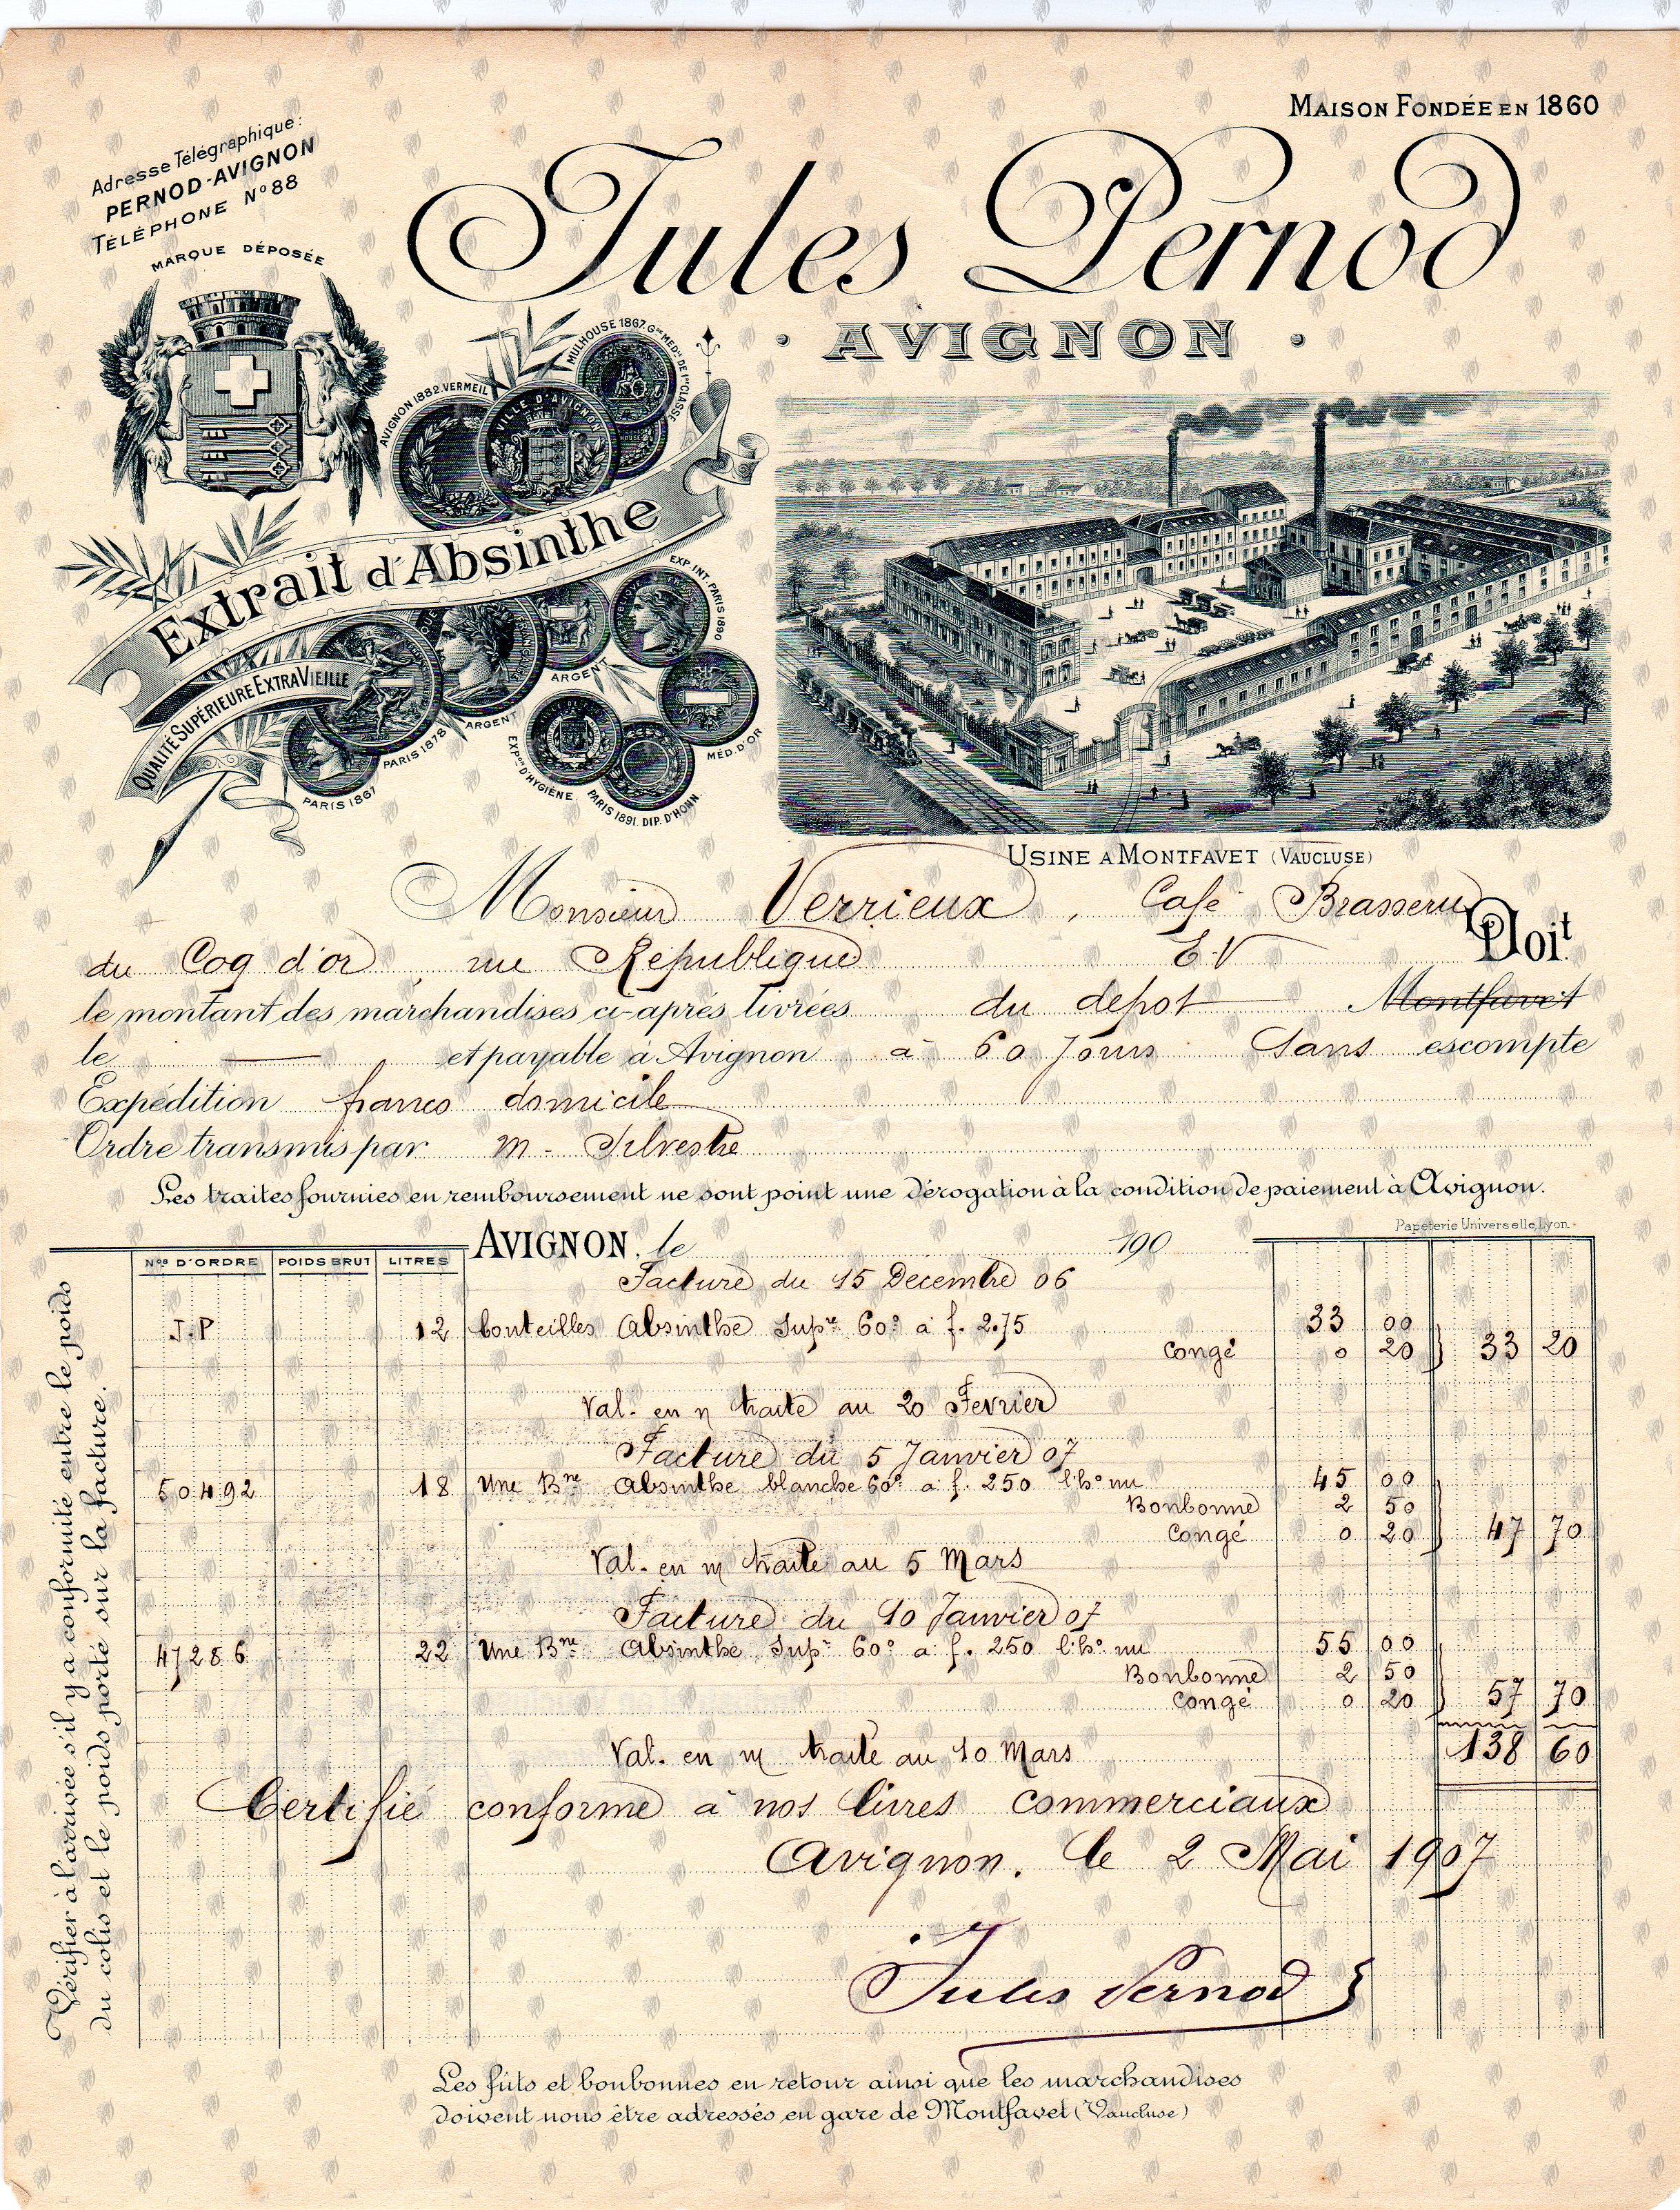 MAISON FONDÉE EN 1860
Adresse Télégraphique:
PERNOD-AVIGNON
TÉLÉPHONE N° 88
MARQUE DÉPOSÉE
Jules Pernod
AVIGNON
MULHOUSE 1867. Gde MEDle DE 1re CLASSE
AVIGNON 1882 VERMEIL
VILLE D'AVIGNON
Extrait d'Absinthe
QUALITÉ SUPÉRIEURE EXTRA VIEILLE
EXP. INT. PARIS 1890
ARGENT
ARGENT
PARIS 1878
PARIS 1867
MÉD. D'OR
EXPon D'HYGIÈNE PARIS 1891. DIP. D'HONN.
USINE A MONTFAVET (VAUCLUSE)
Monsieur Verrieux, Café Brasserie
du Coq d'or, rue République E.V Doit
le montant des marchandises ci-après livrées du depot Montfavet
le et payable à Avignon à 60 jours Sans escompte
Expédition franco domicile
Ordre transmis par M. Silvestre
Les traites fournies en remboursement ne sont point une dérogation à la condition de paiement à Avignon.
Papeterie Universelle, Lyon.
AVIGNON, le 190
Nos D'ORDRE POIDS BRUT LITRES
Facture du 15 Decembre 06
J.P 12 bouteilles Absinthe Supre 60° à f. 2.75 33 00
Congé 0 20 } 33 20
Val. en n traite au 20 Fevrier
Facture du 5 Janvier 07
50492 18 Une Bne Absinthe blanche 60° à f. 250 l'ho nu 45 00
Bonbonne 2 50
Congé 0 20 } 47 70
Val. en m traite au 5 Mars
Facture du 10 Janvier 07
47286 22 Une Bne Absinthe Supre 60° à f. 250 l'ho nu 55 00
Bonbonne 2 50
Congé 0 20 } 57 70
138 60
Val. en m traite au 10 Mars
Certifié conforme à nos livres commerciaux
Avignon, le 2 Mai 1907
Jules Pernod
Vérifier à l'arrivée s'il y a conformité entre le poids
du colis et le poids porté sur la facture.
Les fûts et bonbonnes en retour ainsi que les marchandises
doivent nous être adressés en gare de Montfavet (Vaucluse)